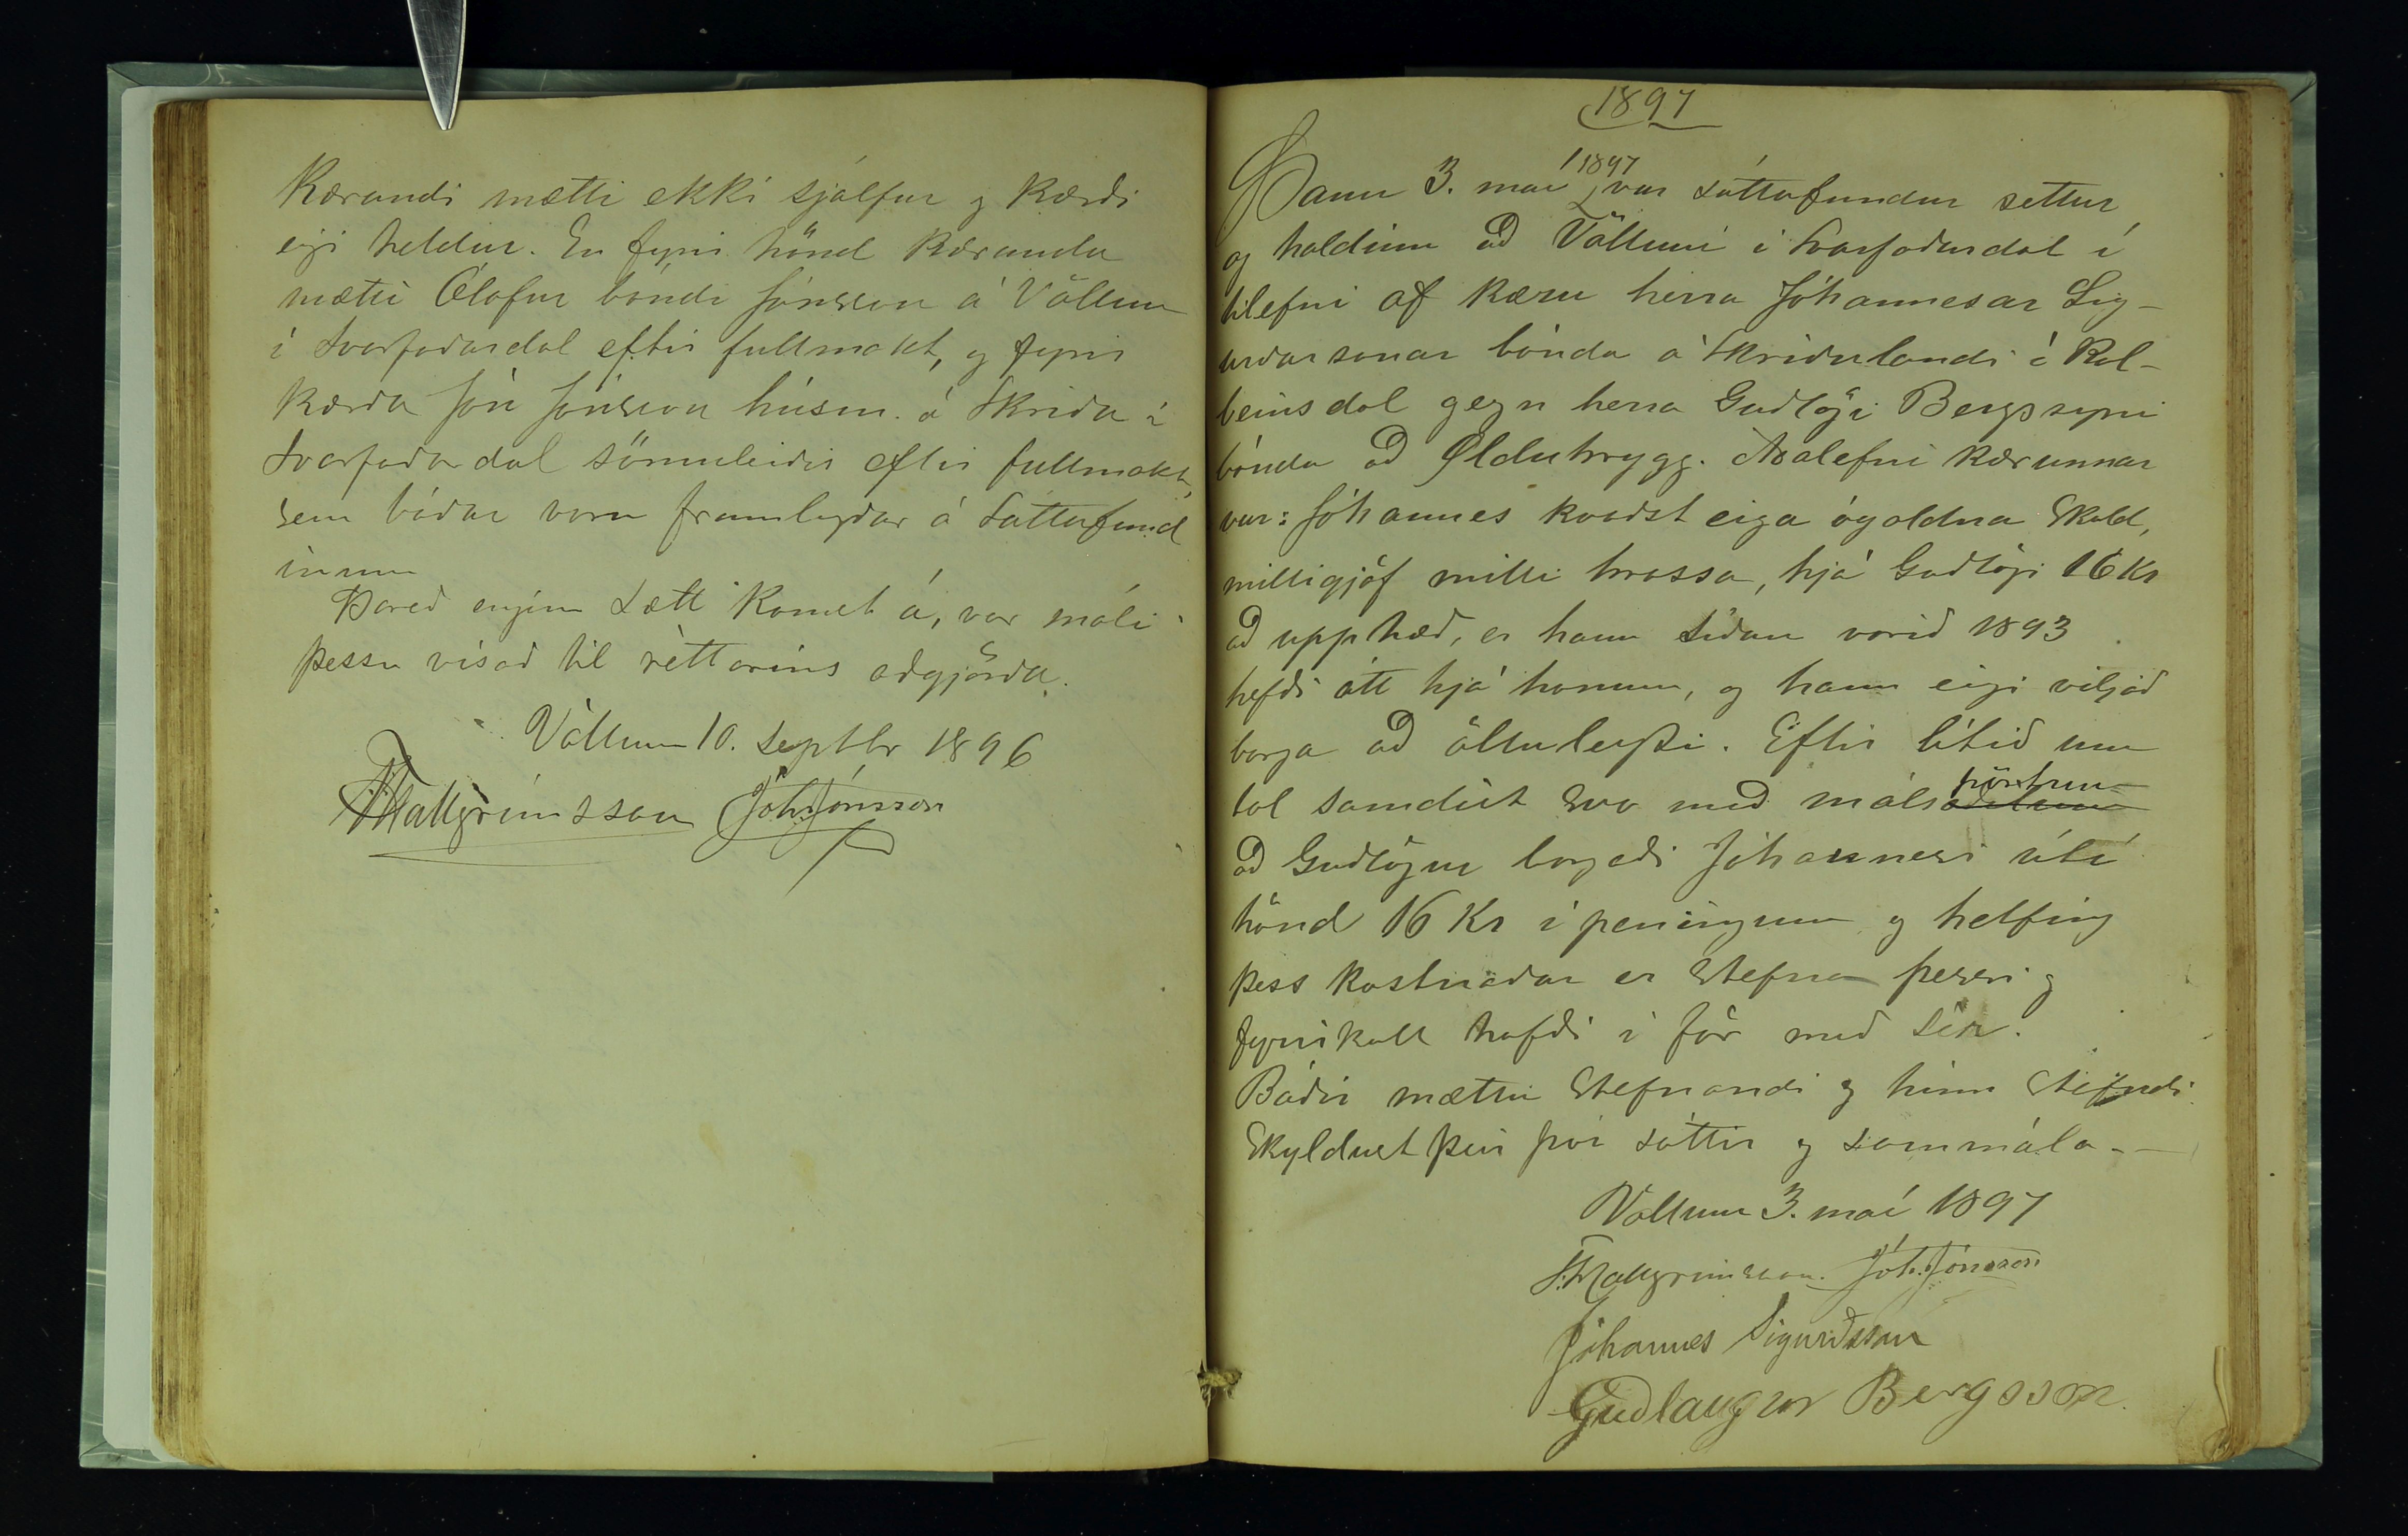 Kærandi mætti ekki sjálfur og kærði
eigi heldur. En fyrir hönd kæranda
mætti Ólafur bóndi Jónsson á Völlum
í Svarfaðardal eftir fullmakt, og fyrir
kærða Jón Jónsson húsm. á Skriðu í
Svarfaðardal sömuleiðis eftir fullmakt,
sem báðar voru framlagðar á sáttafund
inum
Þareð engin sætt komst á, var máli
þessu vísað til réttarins aðgjörða.
Völlum 10. septbr 1896
THallgrímsson Jóh. Jónsson
1897
Þann 3. maí 1897 var sáttafundur settur
og haldinn að Völlum í Svarfaðardal í
tilefni af kæru herra Jóhannesar Sig-
urðarsonar bónda á Skriðulandi í Kol-
beinsdal gegn herra Guðlögi Bergssyni
bónda að Ölduhrygg. Aðalefni kærunnar
var: Jóhannes kvaðst eiga ógoldna skuld,
milligjöf milli hrossa, hjá Guðlögi 16 kr
að upphæð, er hann síðan vorið 1893
hefði átt hjá honum, og hann eigi viljað
borga að ölluleyti. Eftir lítið um
tal samdist svo með málspörtum
að Guðlögur borgaði Jóhannesi útí
hönd 16 kr í peningum og helfing
þess kostnaðar er stefna þessi og
fyrirkall hafði í för með sér.
Báðir mættu stefnandi og hinn stefndi
Skyldust þeir því sáttir og sammála. —
Völlum 3. maí 1897
T. Hallgrímsson. Jóh. Jónsson
Jóhannes Sigurðsson
Guðlaugur Bergsson